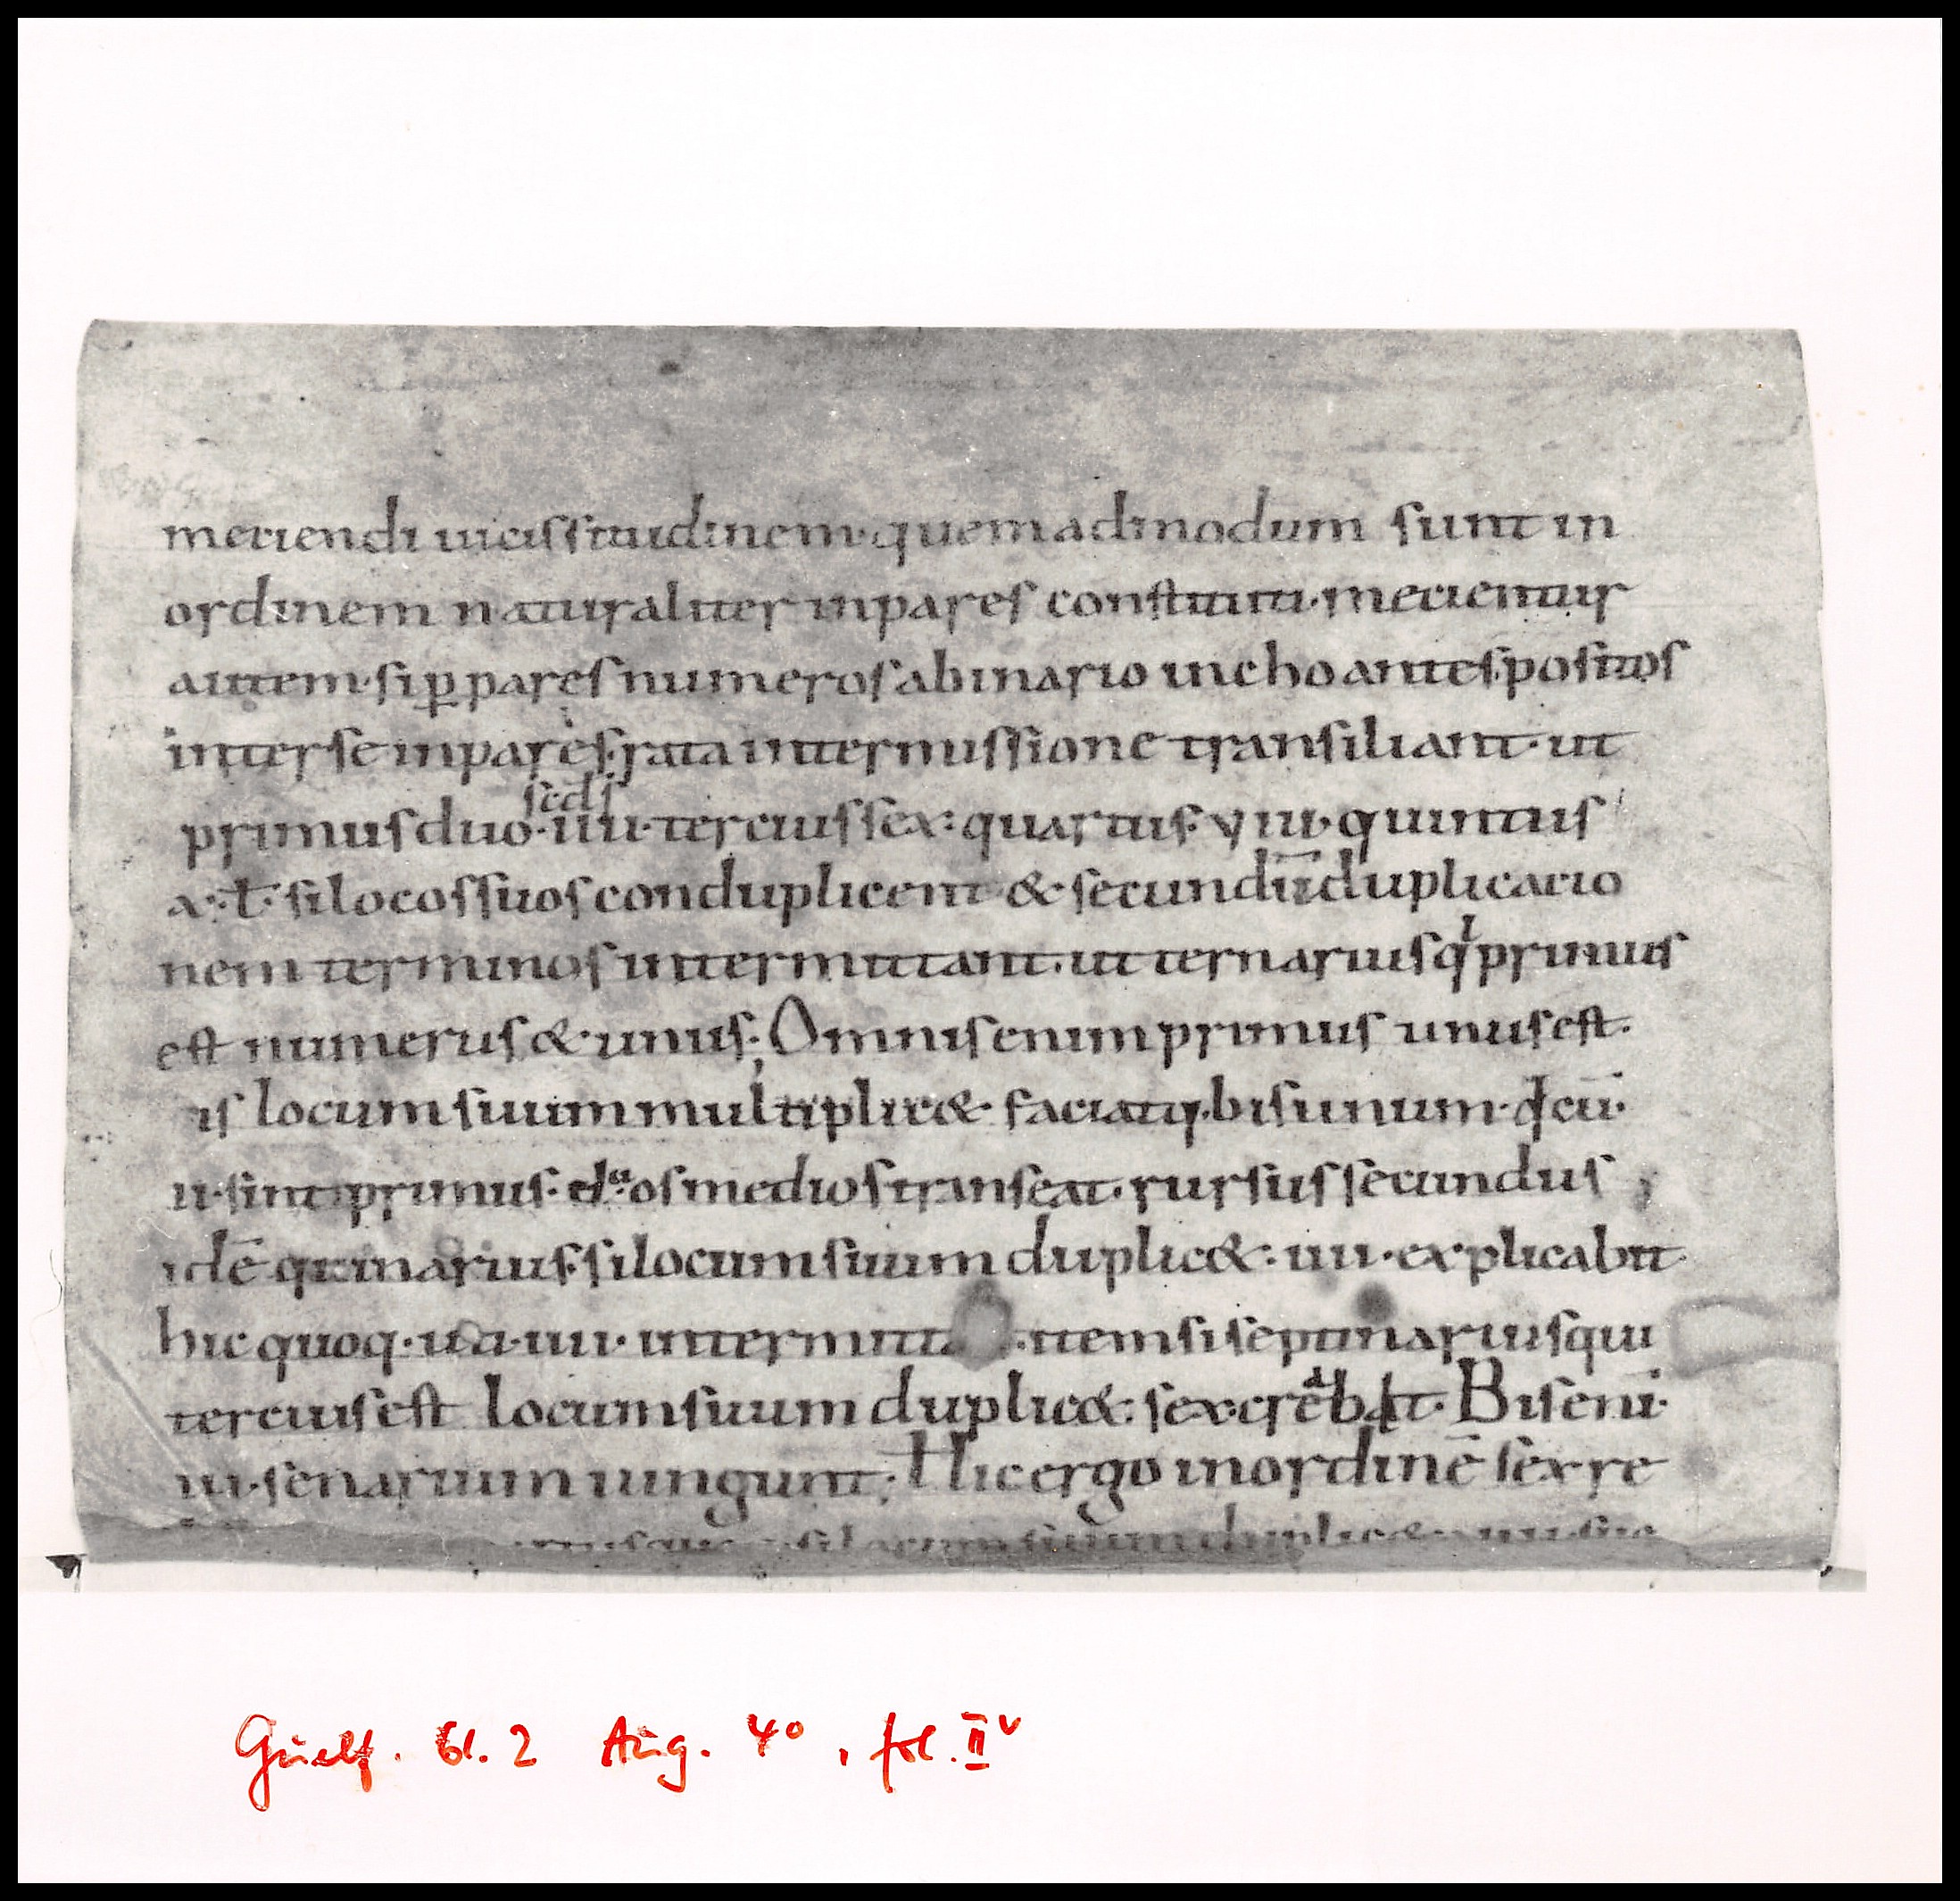 meciendi uicissitudinem· quemadmodum sunt in
ordinem naturaliter inpares constituti· mecientur
autem· si p̲ pares numeros abinario inchoantes· positos
inter se inpares· rata intermissione transiliant· ut
scds
primus duo· iiii· tercius sex: quartus· viii· quintus
x· ł· si locos suos conduplicent & secundū duplicacio
nem terminos intermittant· ut ternarius qⁱ primus
est numerus & unus·, Omnis enim primus unus est·
is locum suum multiplic& faciatq· bis unum· qđ cū·
ii· sint primus· duos medios transeat· rursus secundus
idē quinarius· si locum suum duplic&: iiii· explicabit
hic quoq· iiii· intermitta · item si septinarius qui
tercius est locum suum duplic&: sex· Bis enī·
iii· senarium iungunt·, Hic ergo in ordinē sex re
si locum suum duplic&
Guelf. 61.2 Aug. 4°, fol. IIv